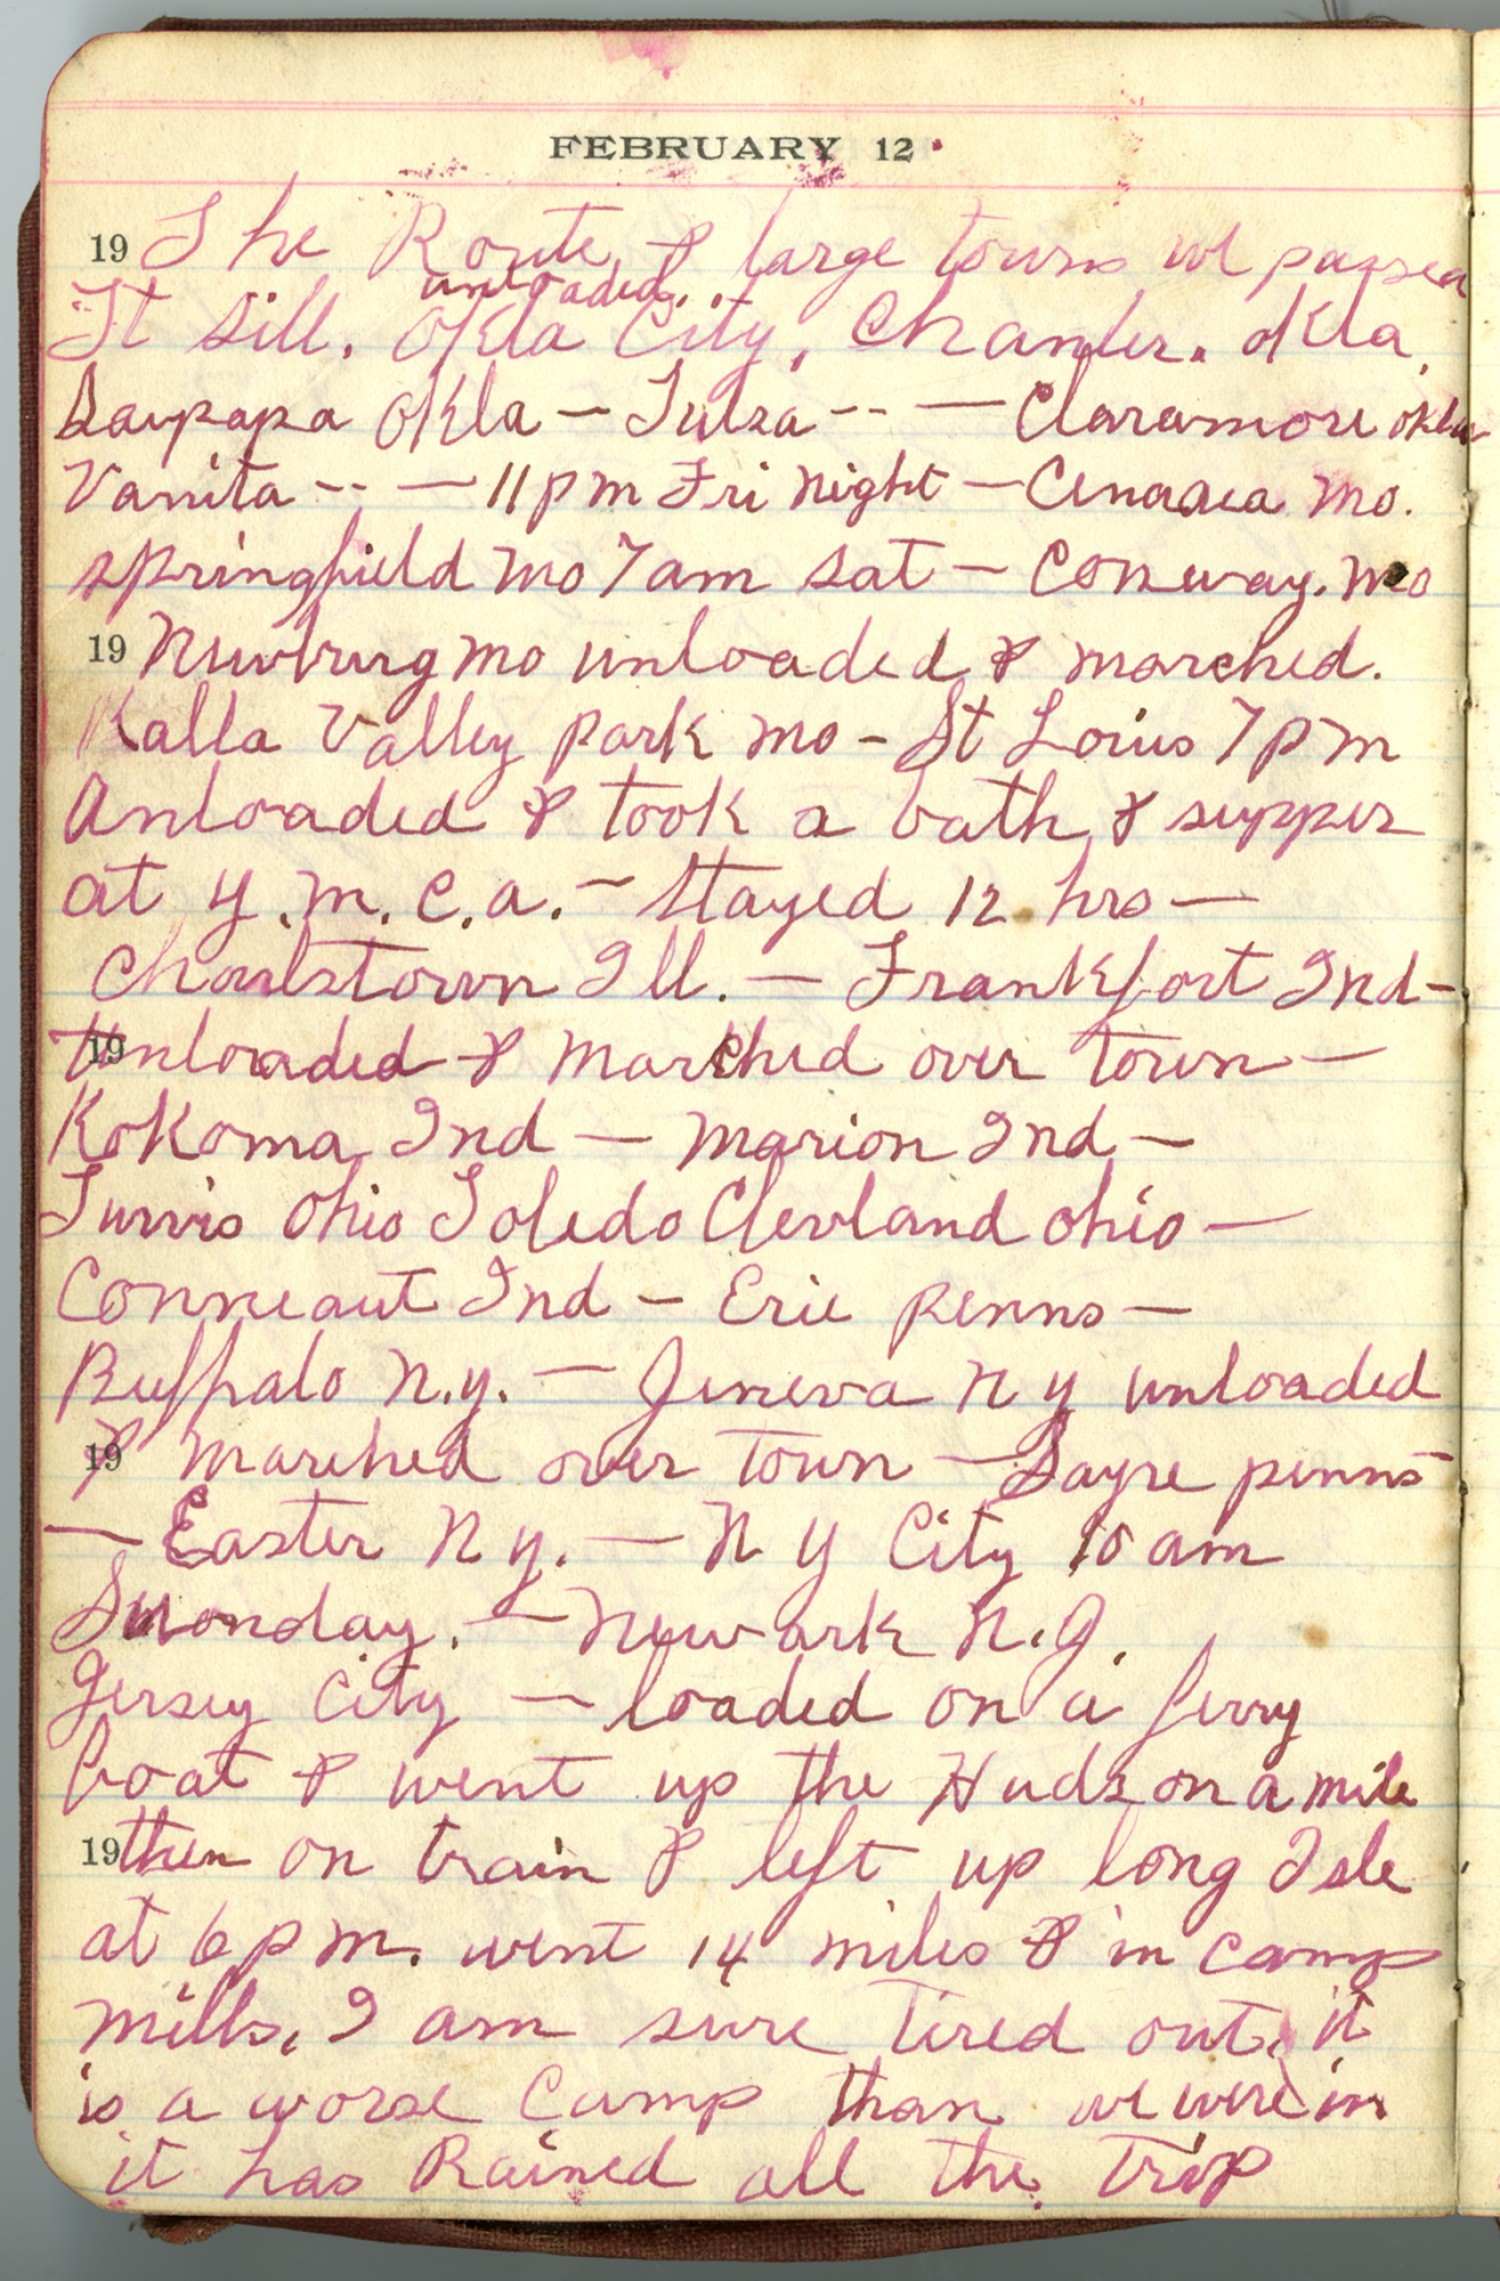 FEBRUARY 12
19 The Route & large towns we passed
unloaded
Ft Sill. Okla City, Chanler. Okla.
Saupapa Okla — Tulsa -- — Claramore Okla
Vanita -- — 11 pm Fri night — Mo.
springfield Mo 7am Sat — Conway. Mo
19 Newburg Mo unloaded & marched.
Kalla Valley park Mo - St Louis 7 pm
Unloaded & took a bath & supper
at Y.M.C.A. - Stayed 12 hrs —
Charlstown Ill. — Frankfort Ind -
19 Unloaded & Marched over town —
Kokoma Ind — Marion Ind —
Ohio Toledo Clevland Ohio —
Conneaut Ind — Erie Penns —
Buffalo N.Y. — Jeneva N Y unloaded
19 & Marched over town — Sayre penns -
— Easter N Y. — N Y City 10 am
. — Newark N.J.
Jersey City — loaded on a ferry
boat & went up the Hudson a mile
19 then on train & left up long Isle
at 6 pm. went 14 miles & in camp
mills. I am sure tired out. it
is a worse Camp than we were in
it has Rained all the trip